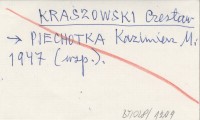 KRASZOWSKI Czesław
→ PIECHOTKA Kazimierz, M.i
1947 (wsp.).